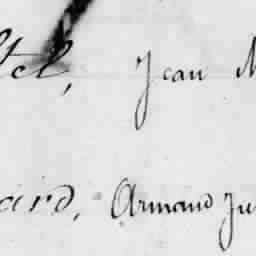 tel, Jean M
ard, Armand Ju